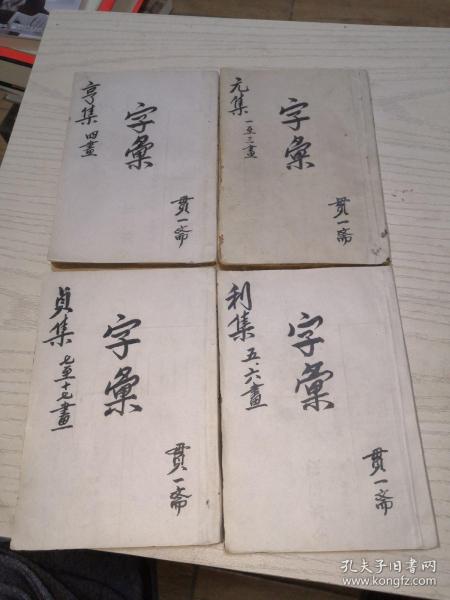 元集 一至三畫
字彙
貫一斋
亨集 四畫
字彙
貫一斋
利集 五、六畫
字彙
貫一斋
貞集 七至十七畫
字彙
貫一斋
孔夫子旧书网
www.kongfz.com